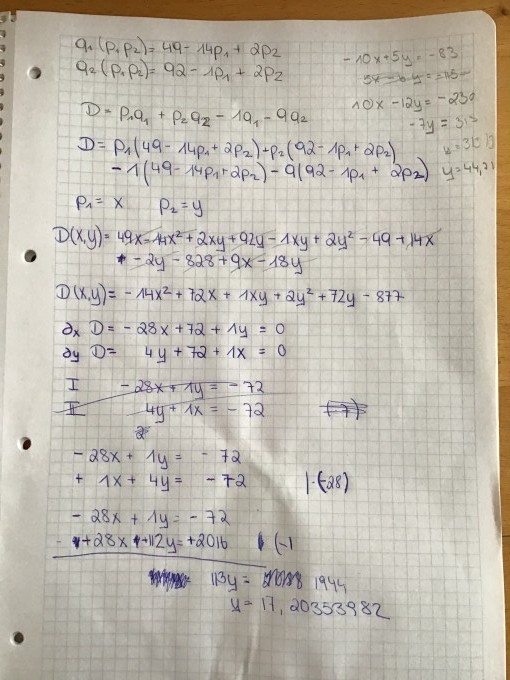 q₁(p₁p₂) = 49 - 14p₁ + 2p₂
q₂(p₁p₂) = 92 - 1p₁ + 2p₂
-10x + 5y = -83
10x - 12y = -230
-7y = 313
y = 44,71
D = p₁q₁ + p₂q₂ - 1q₁ - 9q₂
D = p₁(49 - 14p₁ + 2p₂) + p₂(92 - 1p₁ + 2p₂)
-1(49 - 14p₁ + 2p₂) - 9(92 - 1p₁ + 2p₂)
p₁ = x p₂ = y
D(x,y) = 49x - 14x² + 2xy + 92y - 1xy + 2y² - 49 + 14x
- 2y - 828 + 9x - 18y
D(x,y) = -14x² + 72x + 1xy + 2y² + 72y - 877
∂x D = -28x + 72 + 1y = 0
∂y D = 4y + 72 + 1x = 0
I -28x + 1y = -72
II 4y + 1x = -72 (-7)
-28x + 1y = -72
+ 1x + 4y = -72 |·(-28)
-28x + 1y = -72
+28x +112y = +2016 (-1
113y = 1944
y = 17,20353982